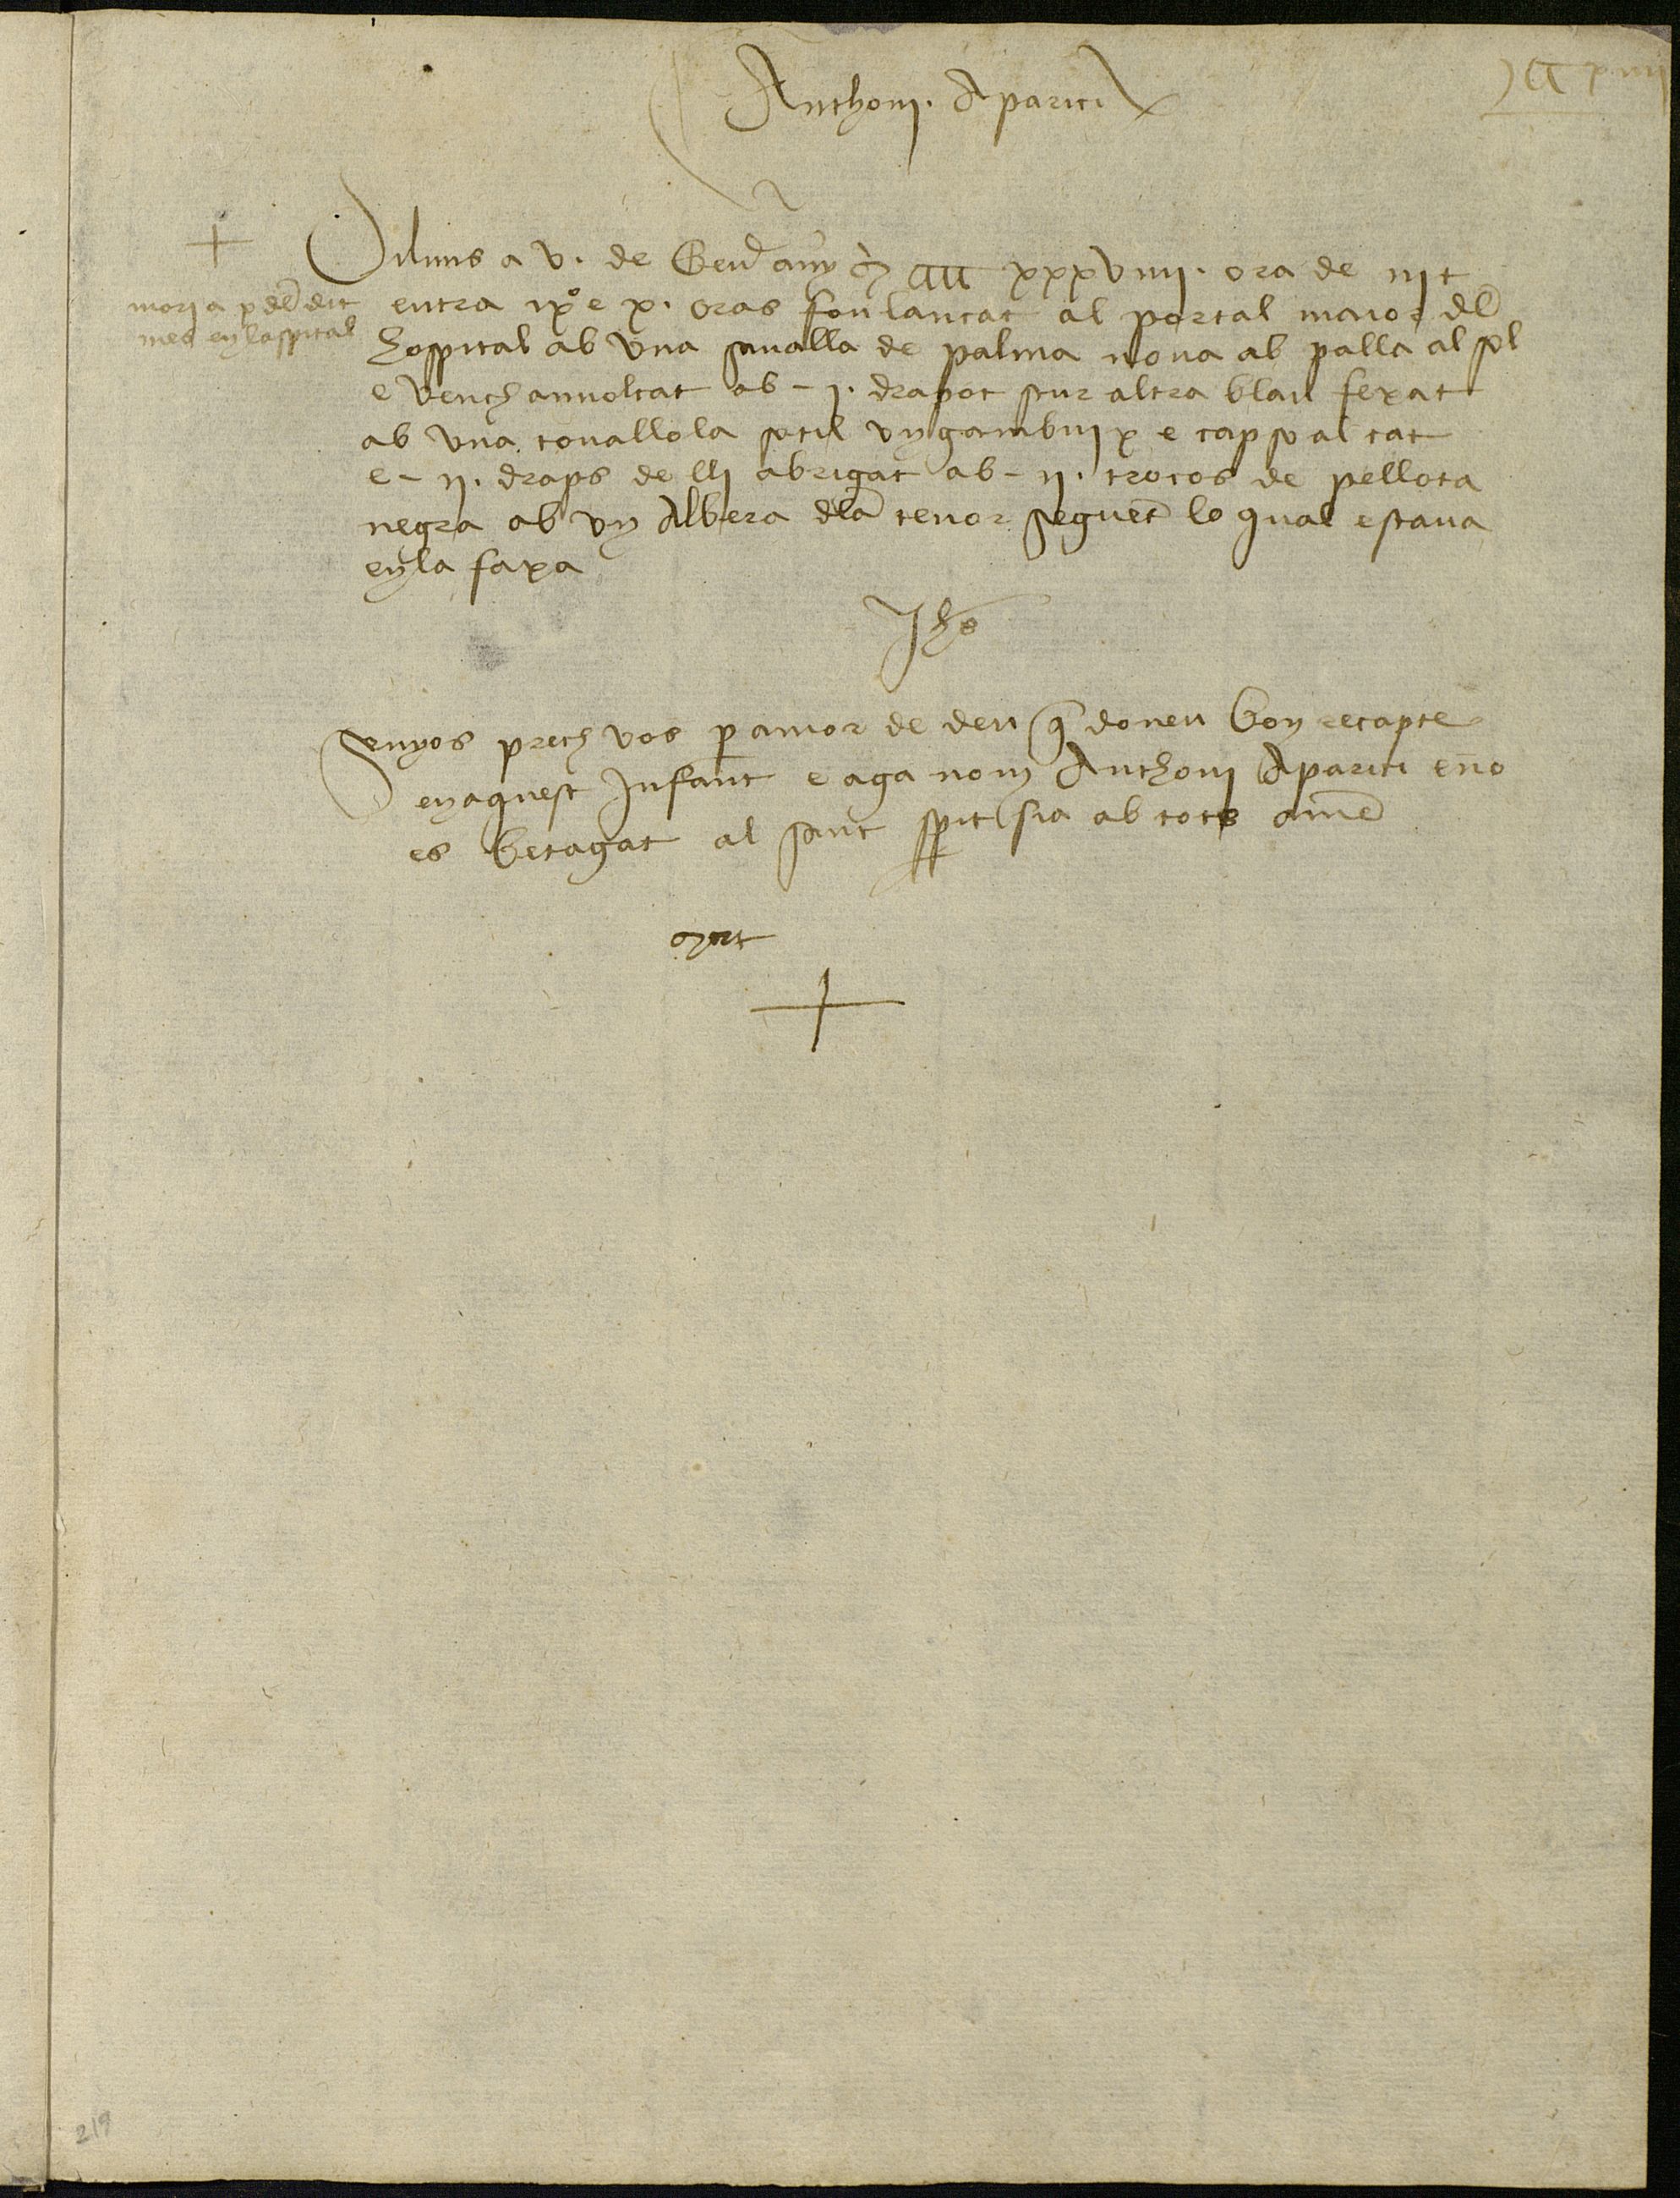 Anthoni. Aparici
Diluns a v. de Gen̄ any M cccc xxxviiii. ora de nit
entra ix.º e x. oras fou lancat al portal maior dl̄
hospital ab una senalla de palma nova ab palla al sol
e vench anvoltat ab - j. drapot scur altra blau fexat
ab una tovallola sotil vn gambuix e capsoal cat
e - ij. draps de lli abrigat ab - ij. trocos de pellota
negra ab vn Albera dla tenor seguēt lo qual estava
en la faxa
mori a x dl̄ dit
mes en laspital
Jhs
Senyos prech vos p amor de deu q̄ doneu bon recapte
en aquest Infant e aga nom Anthoni Aparici e no
es betagat al sant spit sia ab tots amē
mort
219